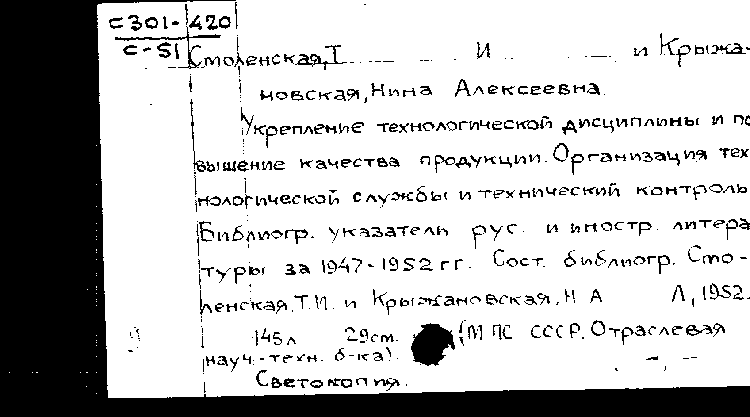 С301-420
С-51
Смоленская, Т И и Крыжа-
новская, Нина Алексеевна.
Укрепление технологической дисциплины и по
вышение качества продукции. Организация тех
нологической службы и технический контроль
Библиогр. указатель рус. и иностр. литера
туры за 1947-1952 гг. Сост. библиогр. Смо-
ленская, Т.И. и Крыжановская, Н А Л, 1952.
145л 29см. (МПС СССР. Отраслевая
науч.-техн. б-ка).
Светокопия.